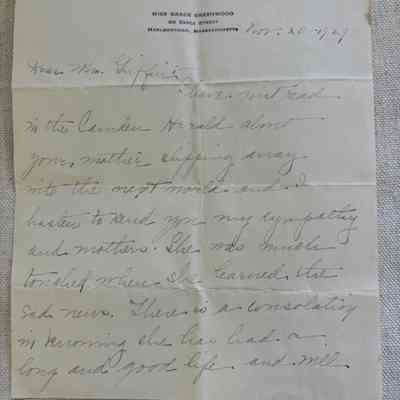 MISS GRACE GREENWOOD
STREET
MARLBOROUGH, MASSACHUSETTS
Nov. 20 - 1929
Dear Mrs. Griffin:
I have just read
in the Camden Herald about
your mother slipping away
into the next world and I
hasten to send you my sympathy
and mothers. She was much
touched when she learned the
sad news. There is a consolation
in knowing she has had a
long and good life and will